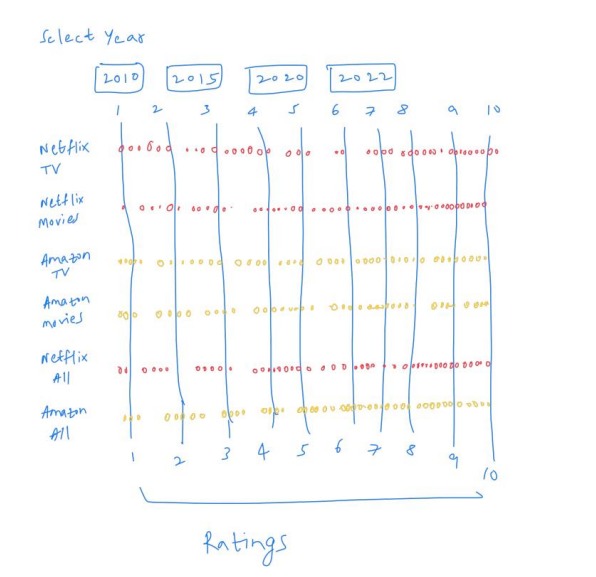 Select Year
2010 2015 2020 2022
1 2 3 4 5 6 7 8 9 10
Netflix
TV
Netflix
Movies
Amazon
TV
Amazon
movies
Netflix
All
Amazon
All
1 2 3 4 5 6 7 8 9 10
Ratings